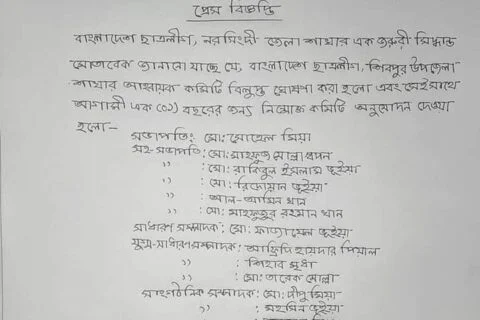 প্রেস বিজ্ঞপ্তি
বাংলাদেশ ছাত্রলীগ, নরসিংদী জেলা শাখার এক জরুরী সিদ্ধান্ত
মোতাবেক জানানো যাচ্ছে যে, বাংলাদেশ ছাত্রলীগ, শিবপুর উপজেলা
শাখার আহবায়ক কমিটি বিলুপ্ত ঘোষণা করা হলো এবং সেই সাথে
আগামী এক (০১) বছরের জন্য নিম্নোক্ত কমিটি অনুমোদন দেওয়া
হলো—
সভাপতি: মো: সোহেল মিয়া
সহ-সভাপতি: মো: মাহফুজ মোল্লা
,, : মো: রাকিবুল ইসলাম ভূইয়া
,, : মো: রিদোয়ান ভূইয়া
,, : আল-আমিন খান
,, : মো: মাহফুজুর রহমান খান
সাধারণ সম্পাদক: মো: ভূইয়া
যুগ্ম-সাধারণ সম্পাদক: আফ্রিদি হায়দার পিয়াল
,, : শিহাব মৃধা
,, : মো: তারেক মোল্লা
সাংগঠনিক সম্পাদক: মো: দীপু মিয়া
,, : মহসিন ভূইয়া